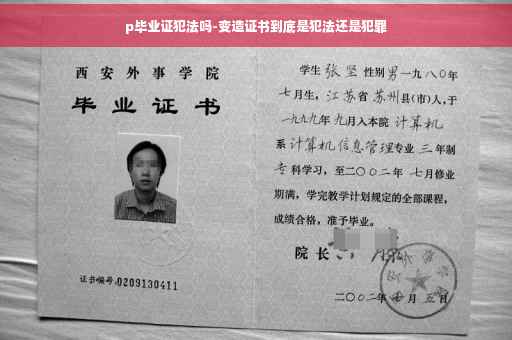 p毕业证犯法吗-变造证书到底是犯法还是犯罪
西安外事学院
毕业证书
证书编号:0209130411
学生 张坚 性别男一九八〇年
七月生,江苏省苏州县(市)人,于
一九九九年九月入本院 计算机
系 计算机信息管理专业 三 年制
专科学习,至二〇〇二年 七月修业
期满,学完教学计划规定的全部课程,
成绩合格,准予毕业。
院长
二〇〇二年 七月 五日